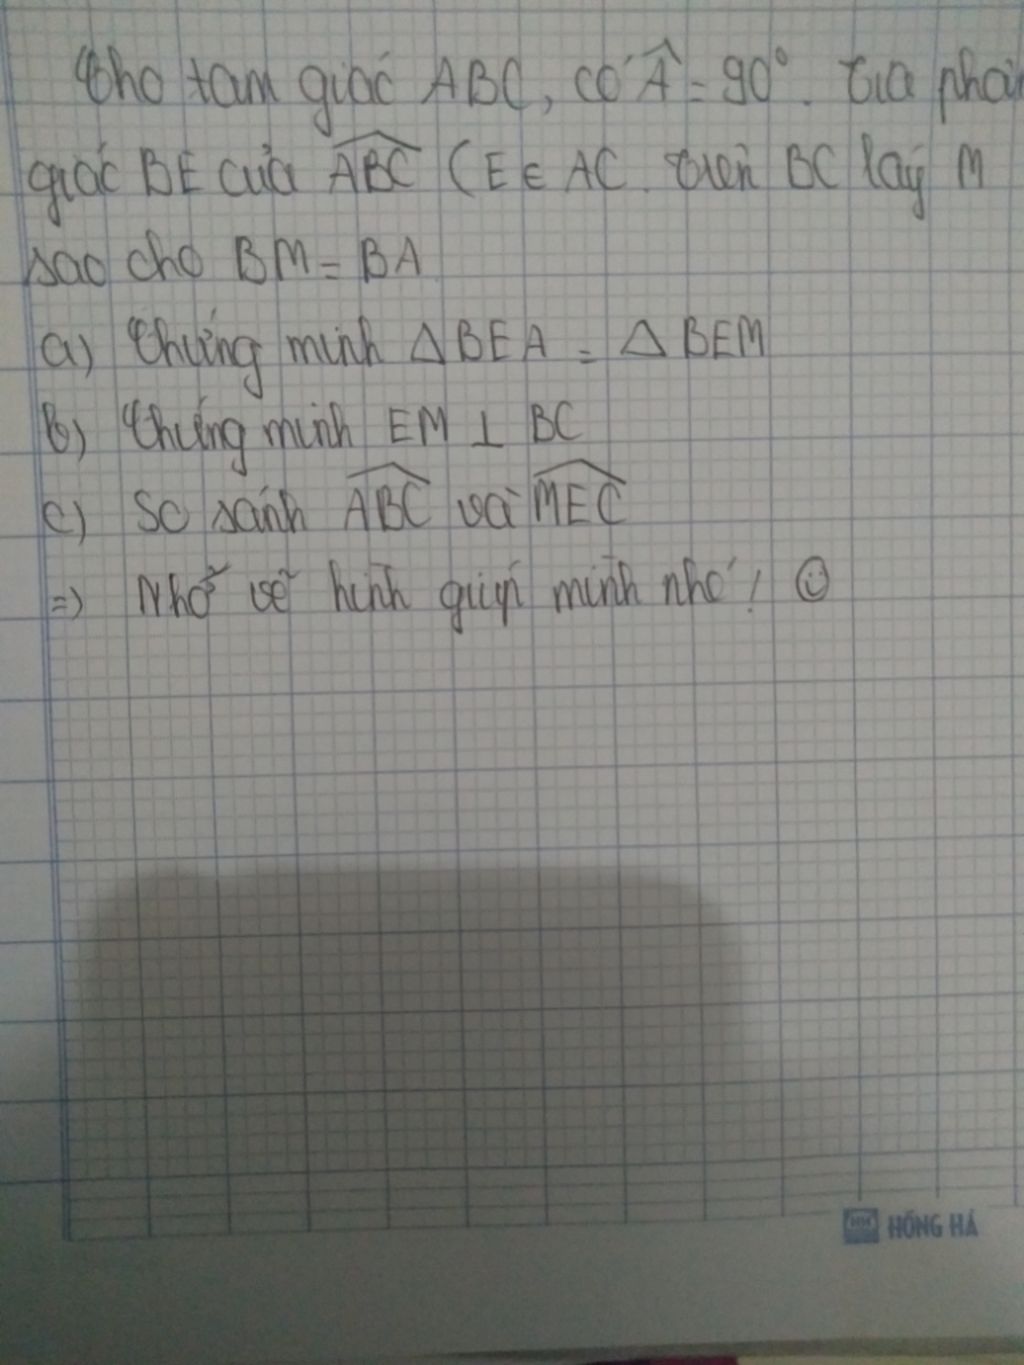 Cho tam giác ABC, có Â = 90°. tia phân
giác BE của ABC (E ∈ AC. trên BC lấy M
sao cho BM = BA
a) Chứng minh ΔBEA = ΔBEM
b) Chứng minh EM ⊥ BC
c) So sánh ABC và MEC
=> Nhớ vẽ hình giúp mình nhé! ☺
HH HỒNG HÀ